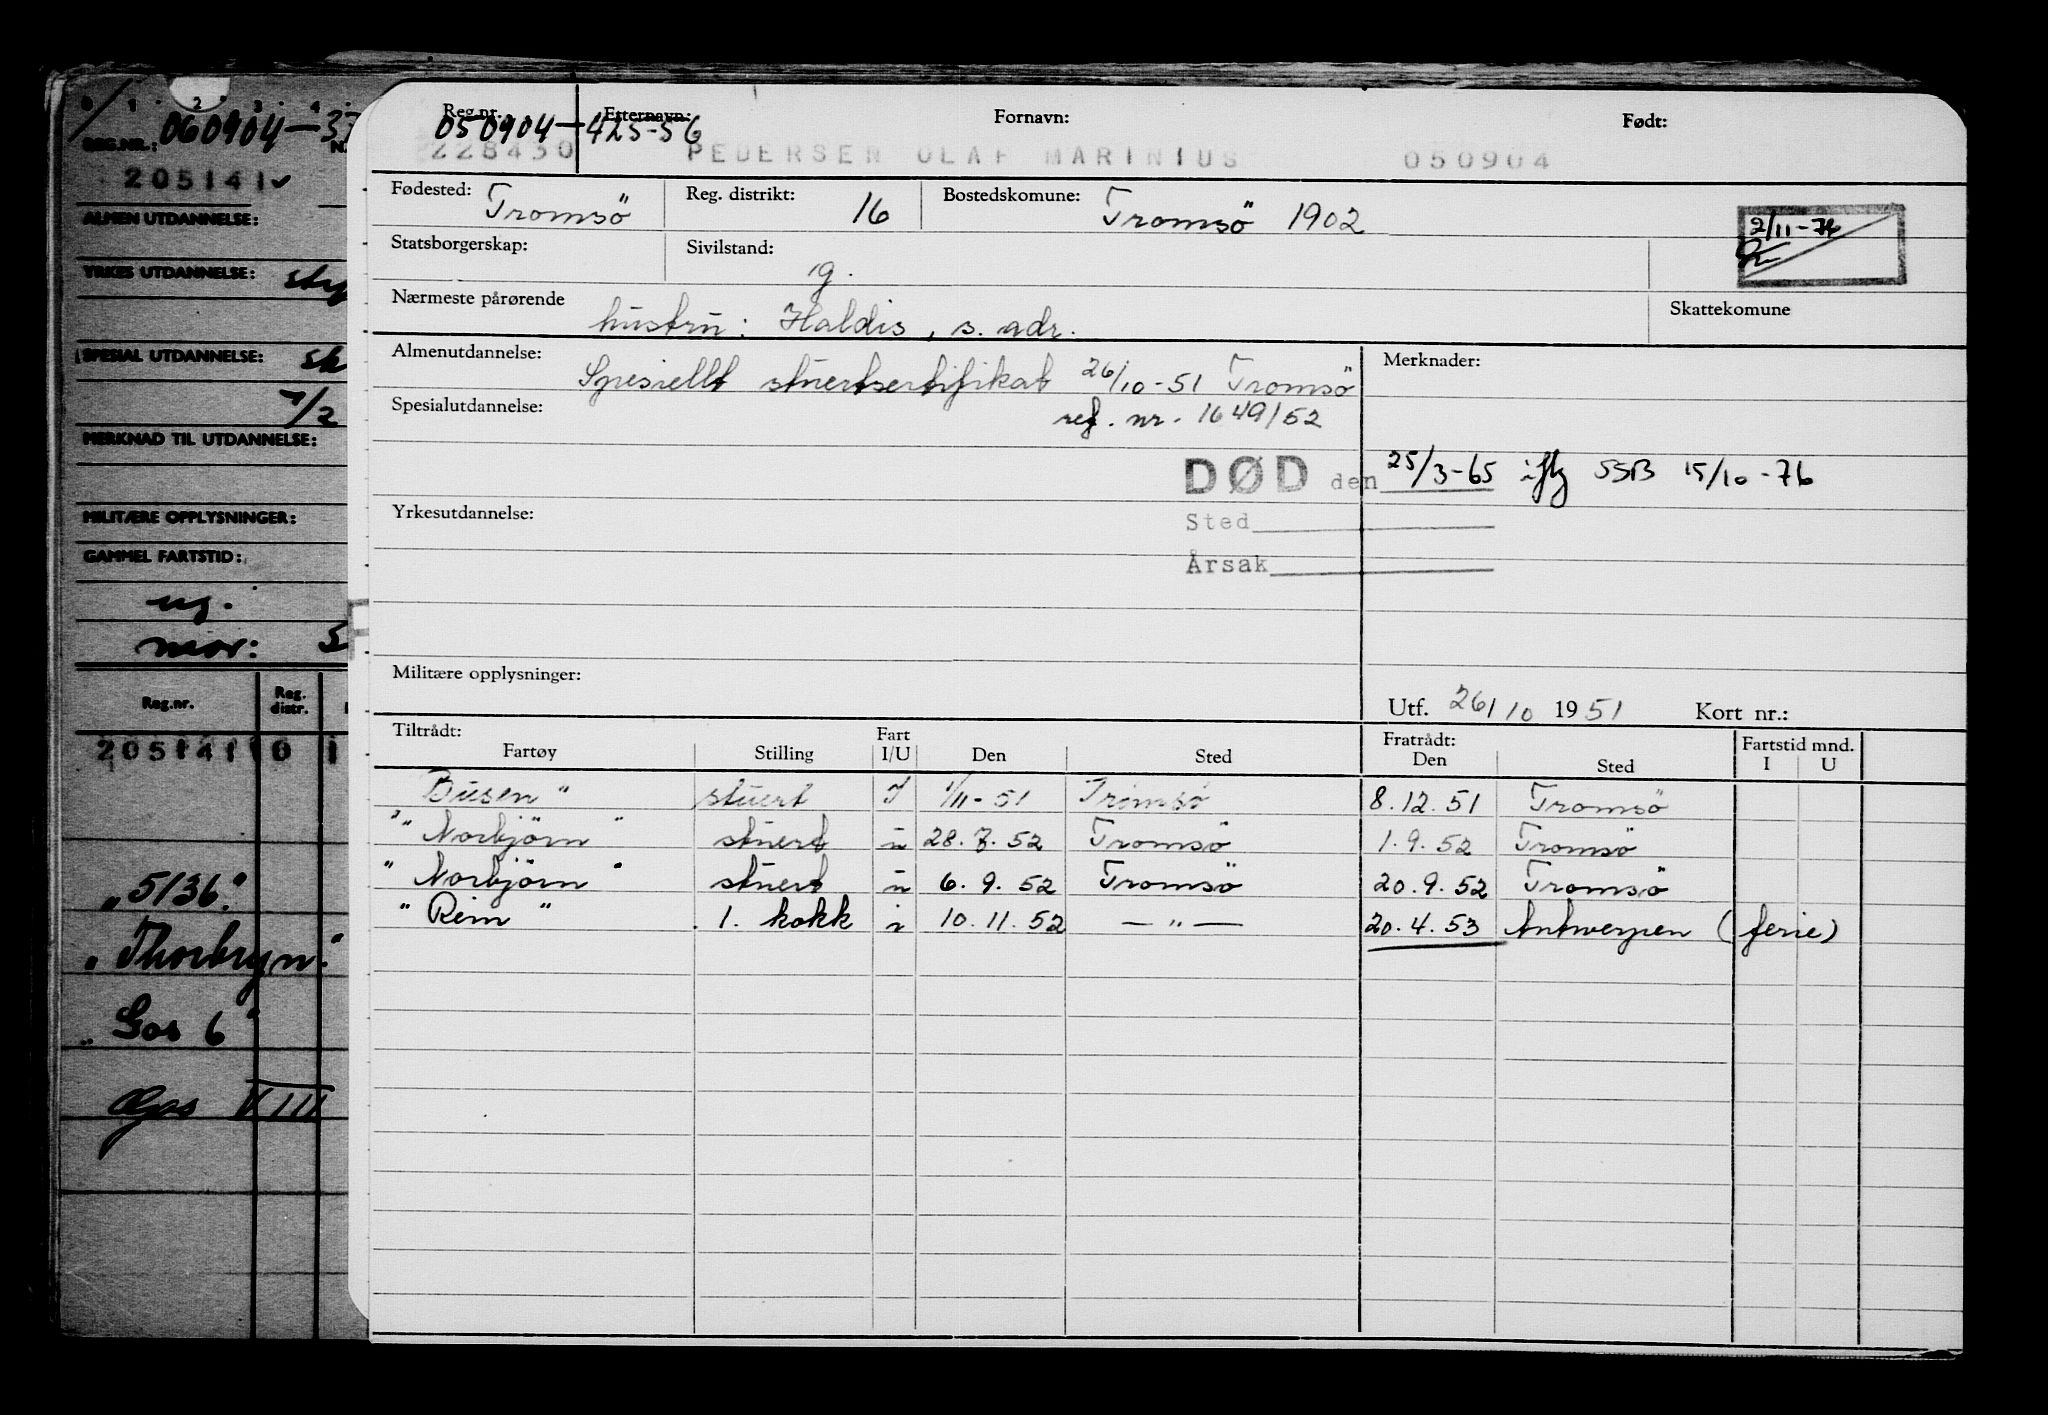 0 1 2 3 4
REG.NR.: 060904-37
N.
205141
ALMEN UTDANNELSE:
YRKES UTDANNELSE:
SPESIAL UTDANNELSE:
1/2
MERKNAD TIL UTDANNELSE:
MILITÆRE OPPLYSNINGER:
GAMMEL FARTSTID:
ug.
mor: S
Reg.nr. Reg. distr.
205141 0 1
"5136"
"Thorbryn"
"Gos 6"
Gos VIII
Reg.nr. Etternavn: Fornavn: Født:
050904-425-56
228430 PEDERSEN OLAF MARINIUS 050904
Fødested: Tromsö Reg. distrikt: 16 Bostedskomune: Tromsö 1902
2/11-76
Statsborgerskap: Sivilstand: g.
Nærmeste pårørende hustru: Haldis, s. adr. Skattekomune
Almenutdannelse: Spesiellt stuertsertifikat 26/10-51 Tromsö Merknader:
Spesialutdannelse: ref. nr. 1649/52
DØD den 25/3-65 iflg SSB 15/10-76
Yrkesutdannelse: Sted
Årsak
Militære opplysninger:
Utf. 26/10 1951 Kort nr.:
Tiltrådt: Fart Fratrådt: Fartstid mnd.
Fartøy Stilling I/U Den Sted Den Sted I U
Busen" stuert I 1/11-51 Tromsö 8.12.51 Tromsö
"Norbjörn" stuert u 28.7.52 Tromsö 1.9.52 Tromsö
"Norbjörn" stuert u 6.9.52 Tromsö 20.9.52 Tromsö
"Reim" 1. kokk i 10.11.52 — " — 20.4.53 Antwerpen (ferie)